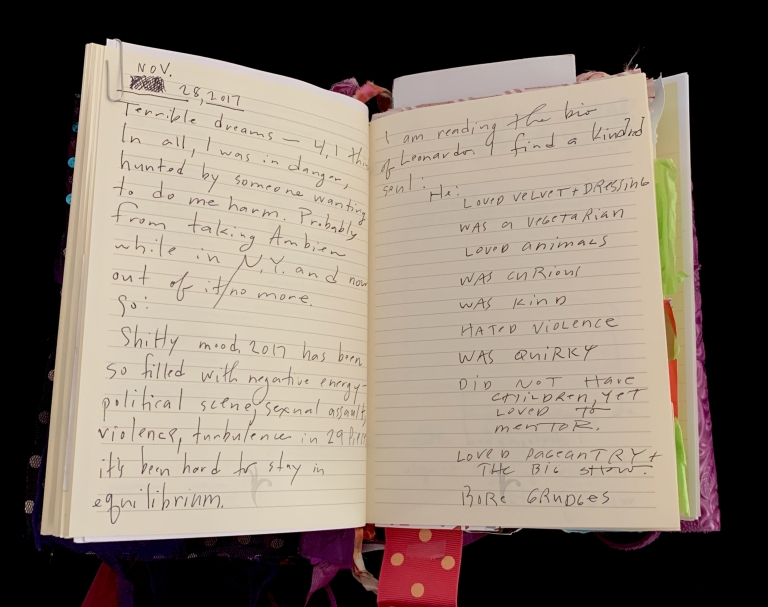 NOV.
28, 2017
Terrible dreams — 4, I think
In all, I was in danger,
hunted by someone wanting
to do me harm. Probably
from taking Ambien
while in N.Y. and now
out of it/no more.
So:
Shitty mood, 2017 has been
so filled with negative energy-
political scene, sexual assault,
violence, turbulence in 29
it's been hard to stay in
equilibrium.
I am reading the bio
of Leonardo. I find a kindred
soul:
He:
LOVED VELVET + DRESSING
WAS A VEGETARIAN
LOVED ANIMALS
WAS CURIOUS
WAS KIND
HATED VIOLENCE
WAS QUIRKY
DID NOT HAVE
CHILDREN, YET
LOVED TO
MENTOR.
LOVED PAGEANTRY +
THE BIG SHOW.
BORE GRUDGES